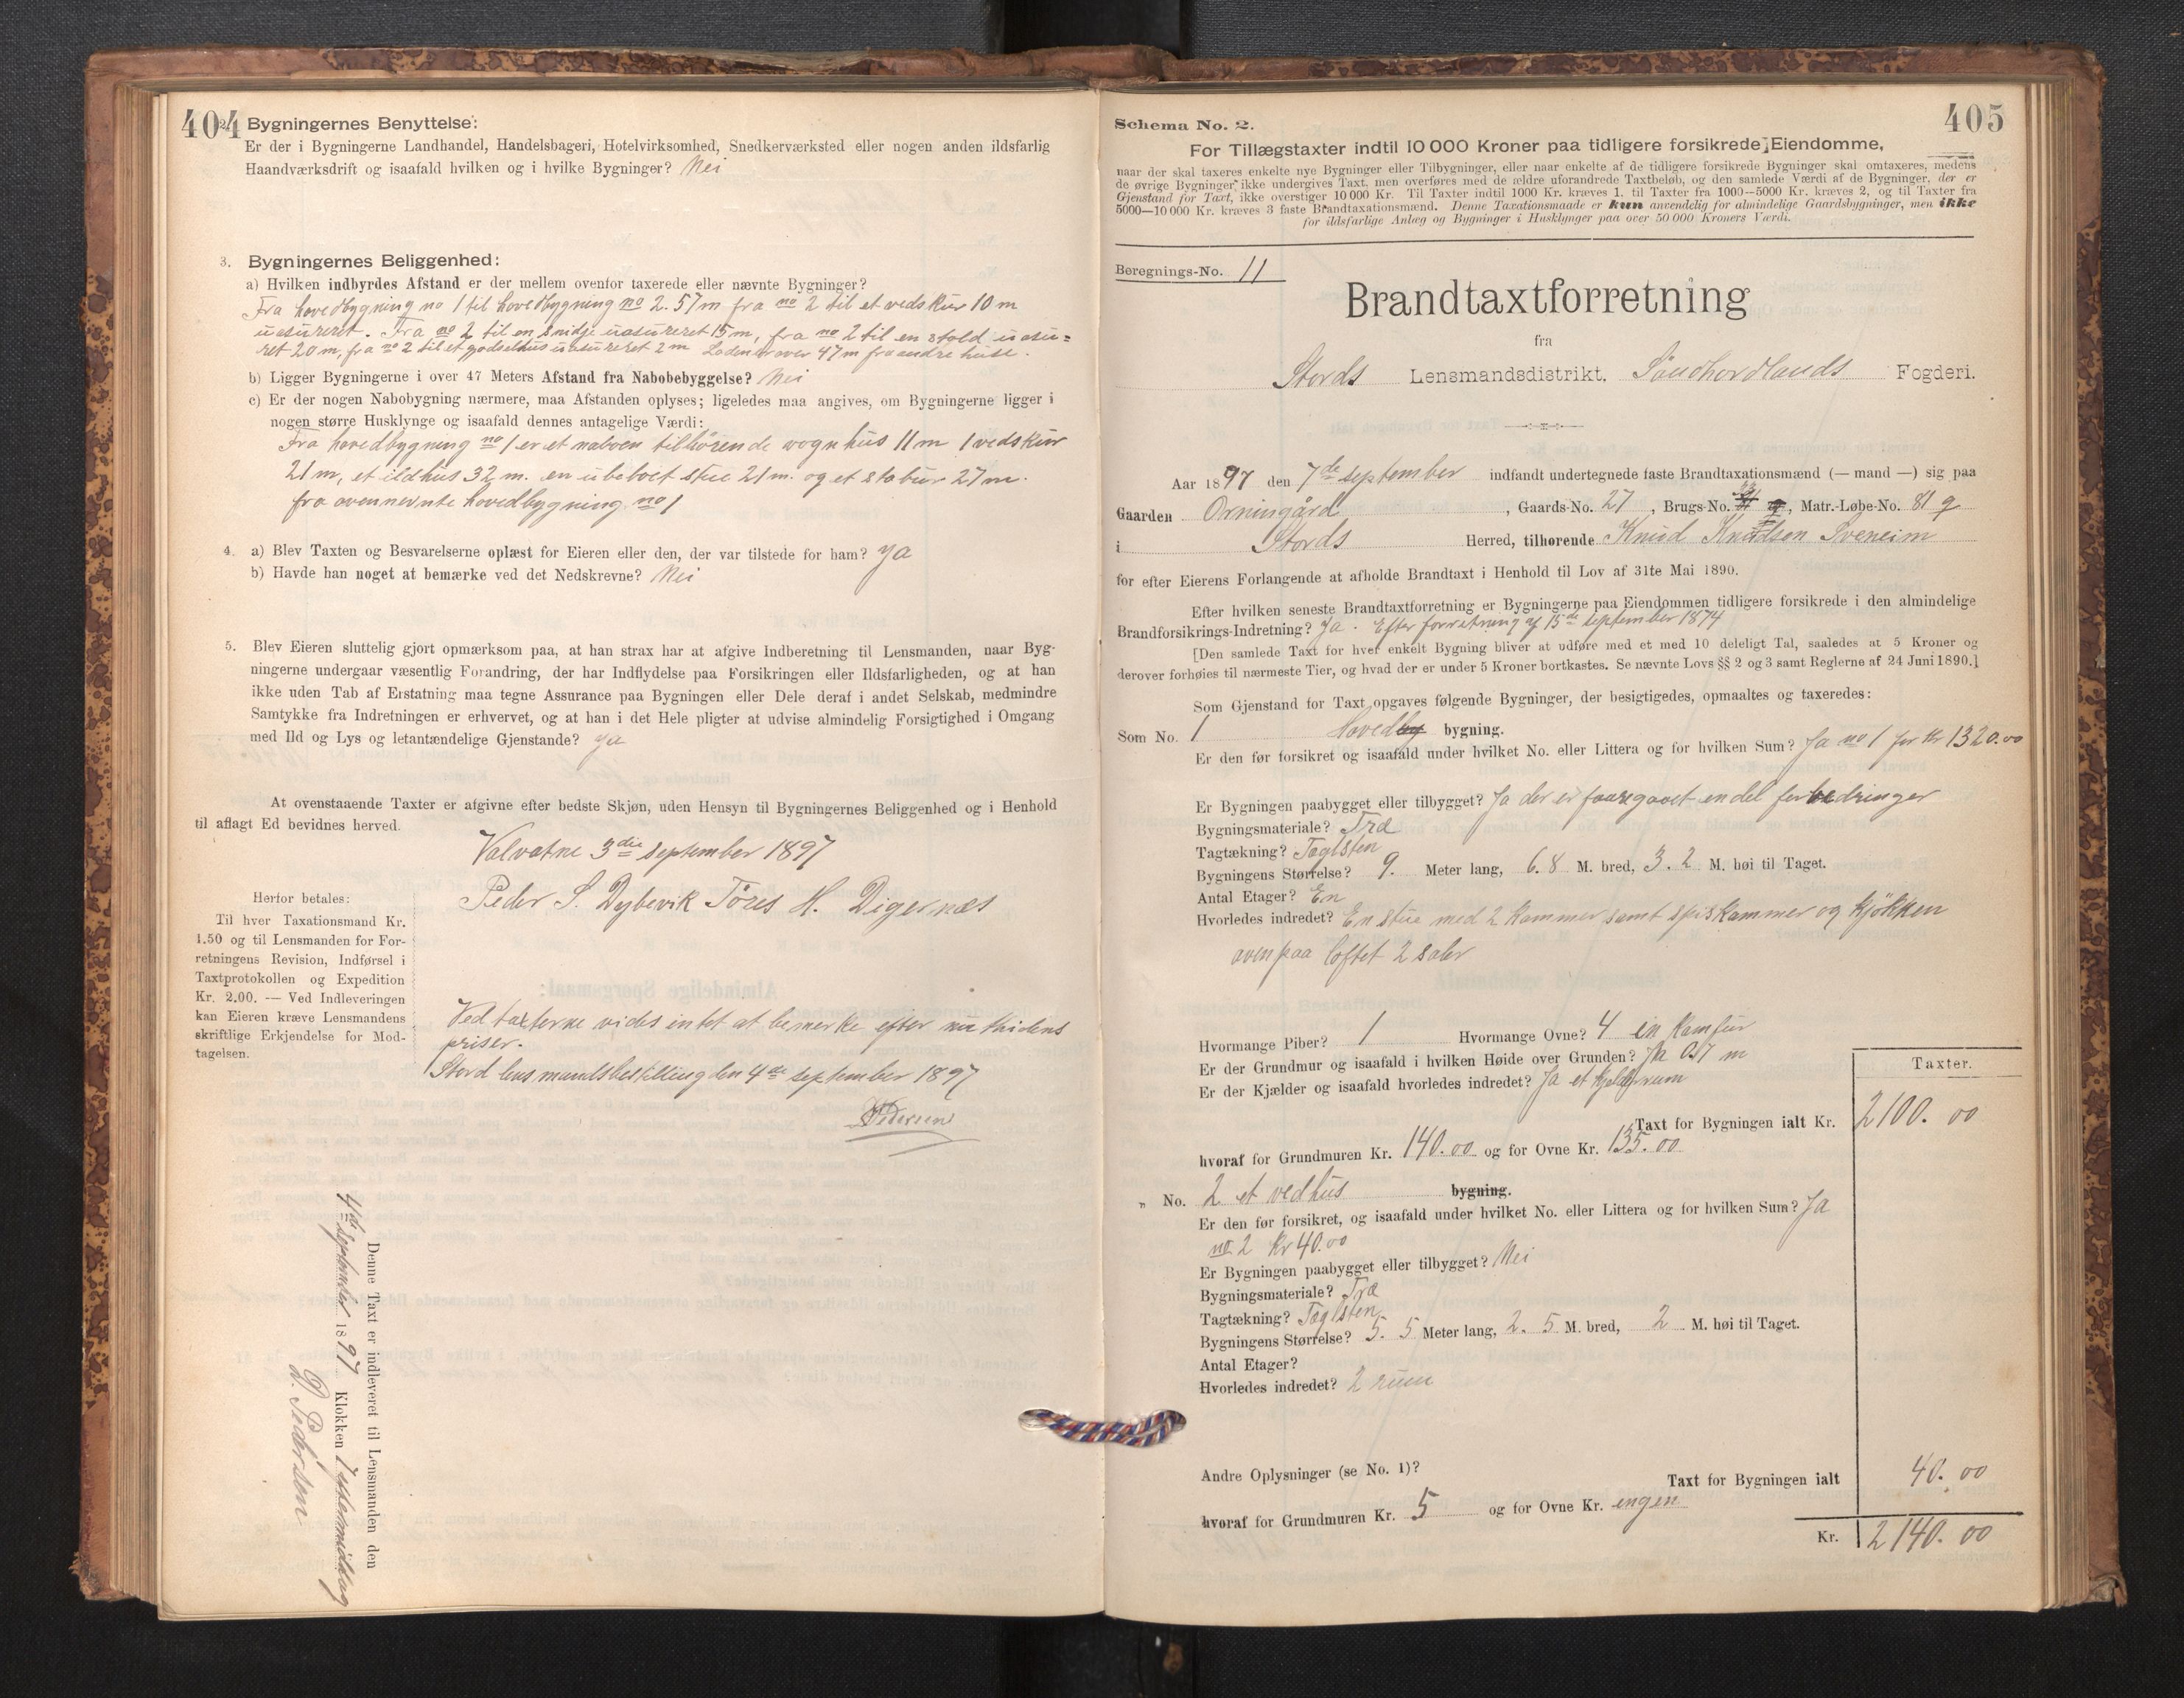 404
Bygningernes Benyttelse:
Er der i Bygningerne Landhandel, Handelsbageri, Hotelvirksomhed, Snedkerværksted eller nogen anden ildsfarlig
Haandværksdrift og isaafald hvilken og i hvilke Bygninger? Nei
3. Bygningernes Beliggenhed:
a) Hvilken indbyrdes Afstand er der mellem ovenfor taxerede eller nævnte Bygninger?
Fra hovedbygning no 1 til hovedbygning no 2. 57 m fra no 2 til et vedskur 10 m
uasureret. Fra no 2 til en smidje uasureret 15 m, fra no 2 til en stold uasu=
ret 20 m, fra no 2 til et gjødselhus uasureret 2 m Loden er over 47 m fra andre huse.
b) Ligger Bygningerne i over 47 Meters Afstand fra Nabobebyggelse? Nei
c) Er der nogen Nabobygning nærmere, maa Afstanden oplyses; ligeledes maa angives, om Bygningerne ligger i
nogen større Husklynge og isaafald dennes antagelige Værdi:
Fra hovedbygning no 1 er et naboen tilhörende vognhus 11 m 1 vedskur
21 m, et ildhus 32 m. en ubeboet stue 21 m. og et stabur 27 m.
fra ovennevnte hovedbygning no 1
4. a) Blev Taxten og Besvarelserne oplæst for Eieren eller den, der var tilstede for ham? ja
b) Havde han noget at bemærke ved det Nedskrevne? Nei
5. Blev Eieren sluttelig gjort opmærksom paa, at han strax har at afgive Indberetning til Lensmanden, naar Byg-
ningerne undergaar væsentlig Forandring, der har Indflydelse paa Forsikringen eller Ildsfarligheden, og at han
ikke uden Tab af Erstatning maa tegne Assurance paa Bygningen eller Dele deraf i andet Selskab, medmindre
Samtykke fra Indretningen er erhvervet, og at han i det Hele pligter at udvise almindelig Forsigtighed i Omgang
med Ild og Lys og letantændelige Gjenstande? ja
At ovenstaaende Taxter er afgivne efter bedste Skjøn, uden Hensyn til Bygningernes Beliggenhed og i Henhold
til aflagt Ed bevidnes herved.
Valvatne 3die september 1897
Peder S. Dybevik Töres H. Digernæs
Herfor betales:
Til hver Taxationsmand Kr.
1.50 og til Lensmanden for For-
retningens Revision, Indførsel i
Taxtprotokollen og Expedition
Kr. 2.00. — Ved Indleveringen
kan Eieren kræve Lensmandens
skriftlige Erkjendelse for Mod-
tagelsen.
Ved taxterne vides intet at bemerke efter nu thidens
priser.
Stord lensmandsbestilling den 4de september 1897
Pedersen
Denne Taxt er indleveret til Lensmanden den
4de september 1897 Klokken 7 eftermiddag
Pedersen
405
Schema No. 2.
For Tillægstaxter indtil 10 000 Kroner paa tidligere forsikrede Eiendomme,
naar der skal taxeres enkelte nye Bygninger eller Tilbygninger, eller naar enkelte af de tidligere forsikrede Bygninger skal omtaxeres, medens
de øvrige Bygninger ikke undergives Taxt, men overføres med de ældre uforandrede Taxtbeløb, og den samlede Værdi af de Bygninger, der er
Gjenstand for Taxt, ikke overstiger 10 000 Kr. Til Taxter indtil 1000 Kr. kræves 1, til Taxter fra 1000—5000 Kr. kræves 2, og til Taxter fra
5000—10 000 Kr. kræves 3 faste Brandtaxationsmænd. Denne Taxationsmaade er kun anvendelig for almindelige Gaardsbygninger, men ikke
for ildsfarlige Anlæg og Bygninger i Husklynger paa over 50 000 Kroners Værdi.
Beregnings-No. 11
Brandtaxtforretning
fra
Stords Lensmandsdistrikt, Söndhordlands Fogderi.
Aar 1897 den 7de september indfandt undertegnede faste Brandtaxationsmænd (— mand —) sig paa
Gaarden Orningård, Gaards-No. 27, Brugs-No. , Matr.-Løbe-No. 81 q
i Stords Herred, tilhørende Knud Knudsen Sveneim
for efter Eierens Forlangende at afholde Brandtaxt i Henhold til Lov af 31te Mai 1890.
Efter hvilken seneste Brandtaxtforretning er Bygningerne paa Eiendommen tidligere forsikrede i den almindelige
Brandforsikrings-Indretning? Ja. Efter forretning af 15de september 1874
[Den samlede Taxt for hver enkelt Bygning bliver at udføre med et med 10 deleligt Tal, saaledes at 5 Kroner og
derover forhøies til nærmeste Tier, og hvad der er under 5 Kroner bortkastes. Se nævnte Lovs §§ 2 og 3 samt Reglerne af 24 Juni 1890.]
Som Gjenstand for Taxt opgaves følgende Bygninger, der besigtigedes, opmaaltes og taxeredes:
Som No. 1 Hovedby bygning.
Er den før forsikret og isaafald under hvilket No. eller Littera og for hvilken Sum? Ja no 1 for kr 1320.00
Er Bygningen paabygget eller tilbygget? Ja der er fooregaaet en del forbedringer
Bygningsmateriale? Træ
Tagtækning? Taglsten
Bygningens Størrelse? 9. Meter lang, 6.8 M. bred, 3.2 M. høi til Taget.
Antal Etager? En
Hvorledes indredet? En stue med 2 kammer samt spiskammer og kjökken
ovenpaa loftet 2 saler
Hvormange Piber? 1 Hvormange Ovne? 4 en Komfur
Er der Grundmur og isaafald i hvilken Høide over Grunden? Ja 0.7 m
Er der Kjælder og isaafald hvorledes indredet? Ja et kjelderrum
Taxter.
Taxt for Bygningen ialt Kr. 2100.00
hvoraf for Grundmuren Kr. 140.00 og for Ovne Kr. 135.00
„ No. 2 et vedhus bygning.
Er den før forsikret, og isaafald under hvilket No. eller Littera og for hvilken Sum? Ja
no 2 kr 40.00
Er Bygningen paabygget eller tilbygget? Nei
Bygningsmateriale? Træ
Tagtækning? Taglsten
Bygningens Størrelse? 5.5 Meter lang, 2.5 M. bred, 2 M. høi til Taget.
Antal Etager?
Hvorledes indredet? 2 rum
Andre Oplysninger (se No. 1)?
Taxt for Bygningen ialt 40.00
hvoraf for Grundmuren Kr. 5 og for Ovne Kr. engen
Kr. 2140.00